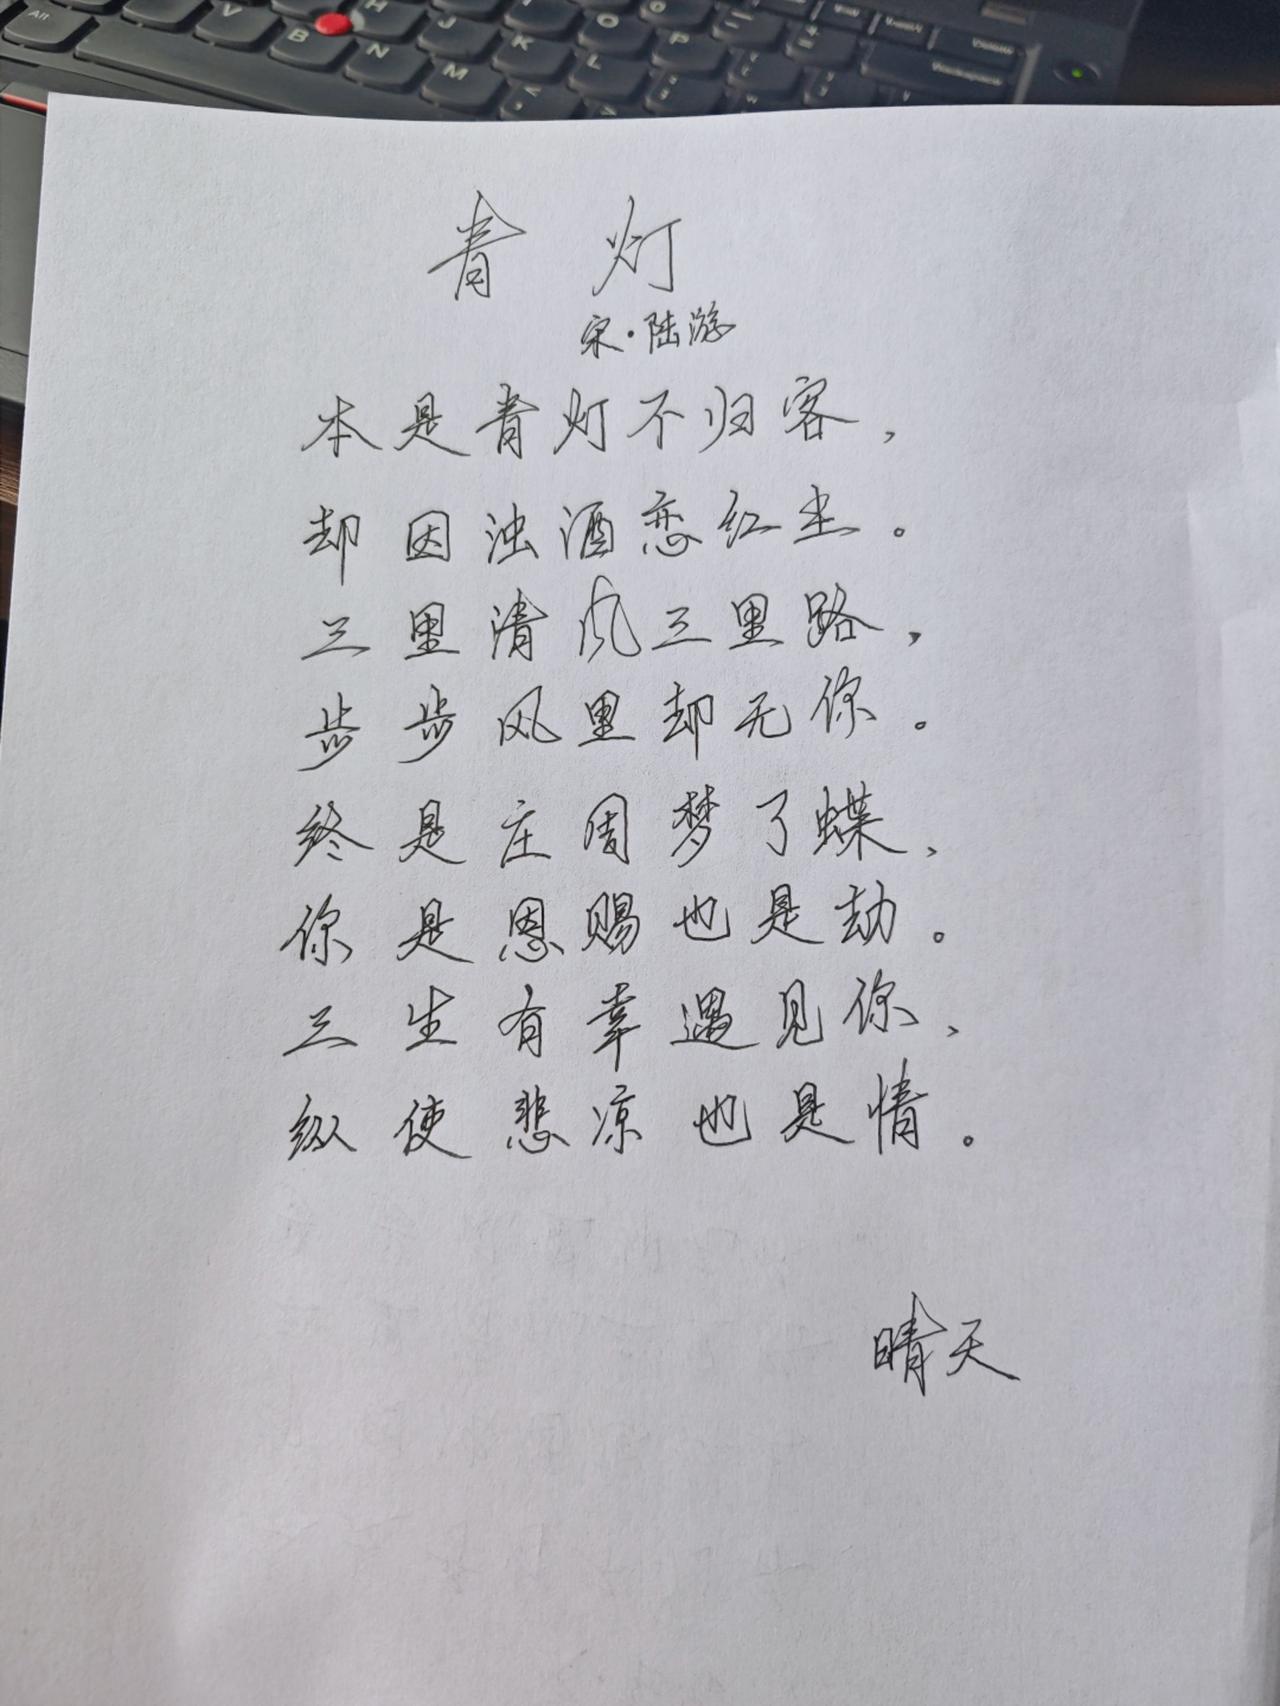 Alt
V
B
H
N
M
K
L
O
P
青灯
宋·陆游
本是青灯不归客,
却因浊酒恋红尘。
三里清风三里路,
步步风里却无你。
终是庄周梦了蝶、
你是恩赐也是劫。
三生有幸遇见你、
纵使悲凉也是情。
晴天